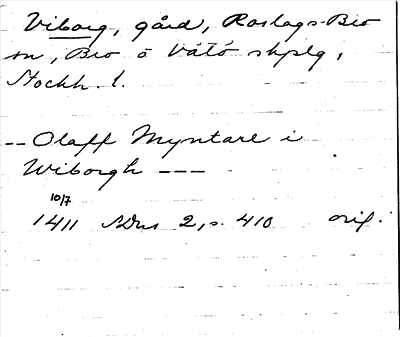 Viborg, gård, Roslags-Bro
sn, Bro o Vätö skplg,
Stockh. l.
-- Olaff Myntare i
Wiborgh ---
10/7
1411 SDns 2, s. 410 orig.